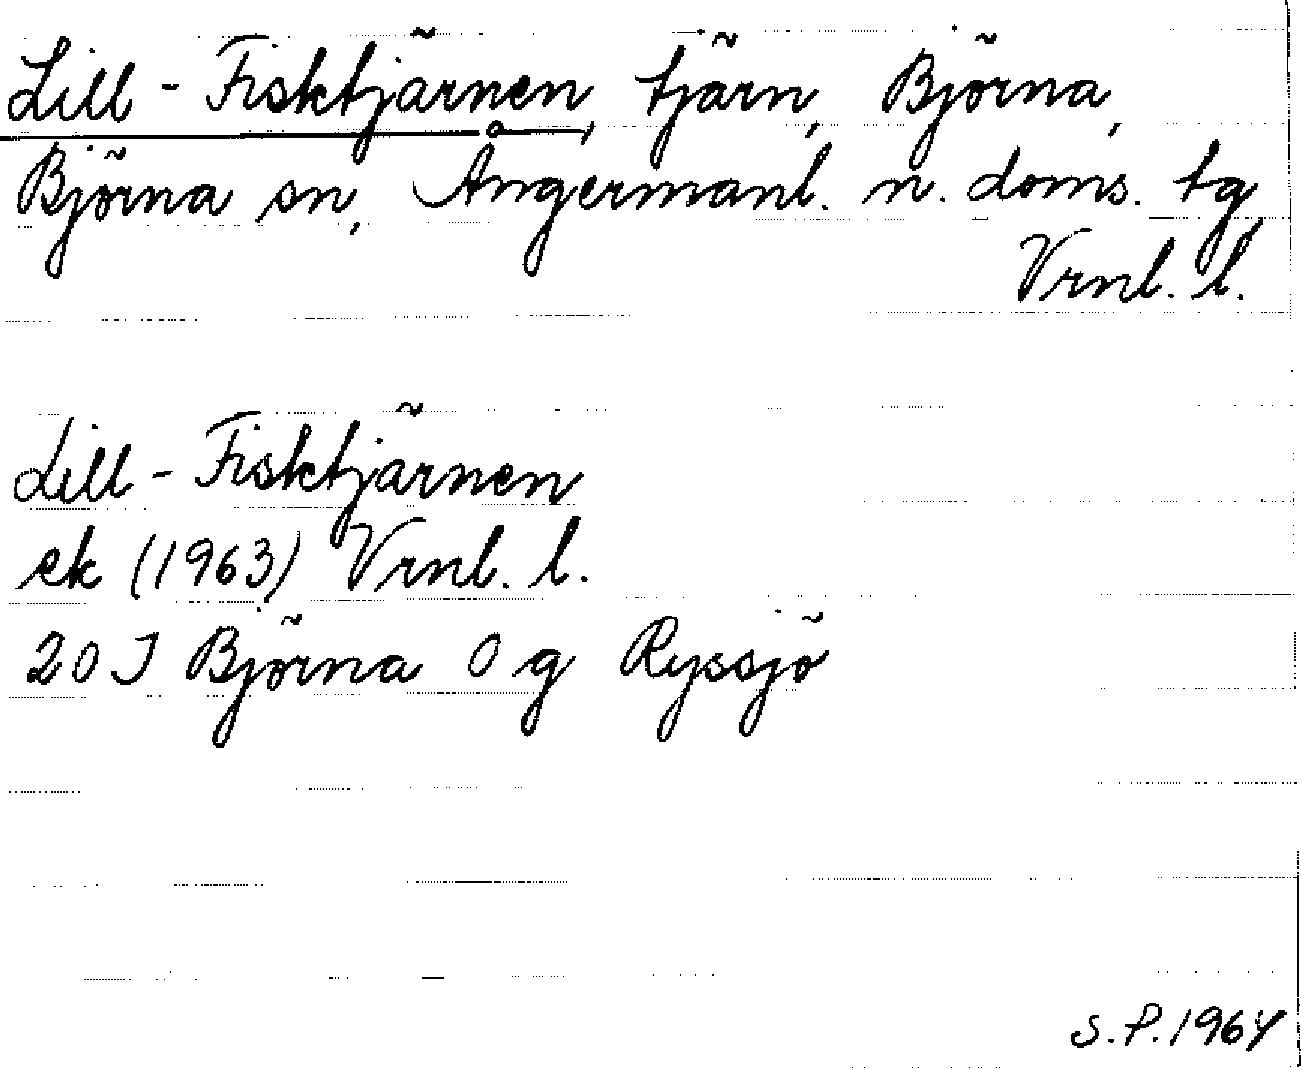 Lill-Fisktjärnen, tjärn, Björna,
Björna sn, Ångermanl. n. doms. tg
Vrnl. l.
Lill-Fisktjärnen
ek (1963) Vrnl. l.
20 J Björna 0 g Ryssjö
S.P. 1964